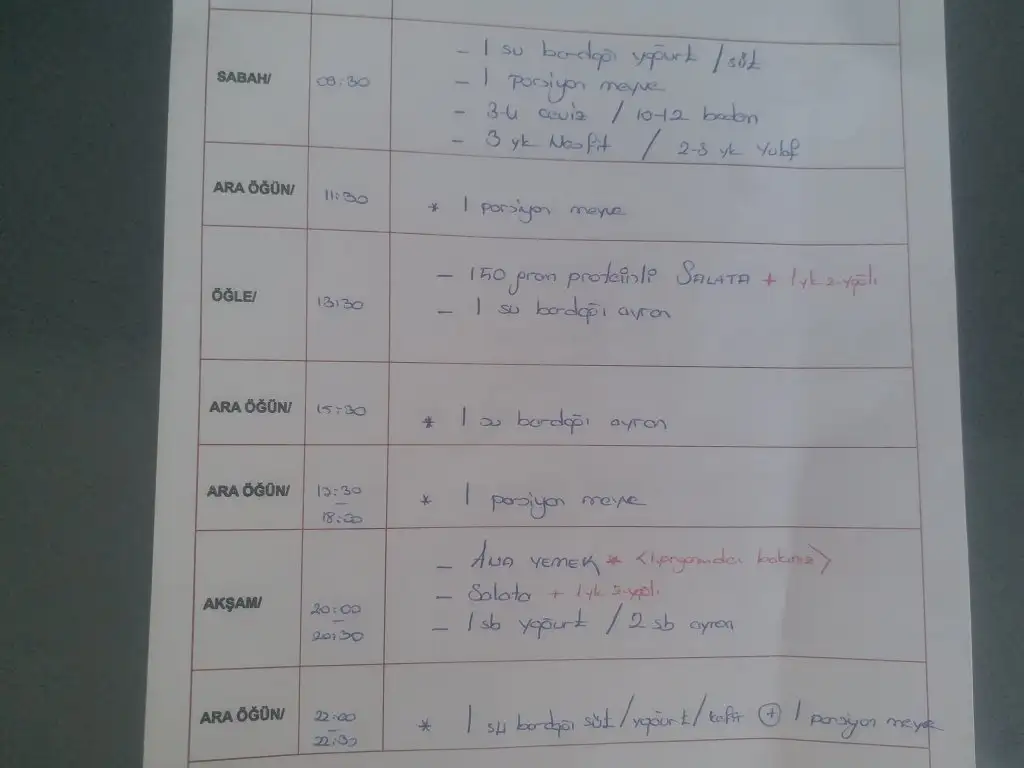 SABAH/ 09:30
- 1 su bardağı yoğurt / süt
- 1 porsiyon meyve
- 3-4 ceviz / 10-12 badem
- 3 yk Nesfit / 2-3 yk Yulaf
ARA ÖĞÜN/ 11:30 * 1 porsiyon meyve
ÖĞLE/ 13:30
- 150 gram proteinli SALATA + 1 yk z.yağlı
- 1 su bardağı ayran
ARA ÖĞÜN/ 15:30 * 1 su bardağı ayran
ARA ÖĞÜN/ 17:30 - 18:00 * 1 porsiyon meyve
AKŞAM/ 20:00 - 20:30
- ANA YEMEK * < 1.programdan bakınız >
- Salata + 1 yk z.yağlı
- 1 sb yoğurt / 2 sb ayran
ARA ÖĞÜN/ 22:00 - 22:30 * 1 su bardağı süt / yoğurt / kefir + 1 porsiyon meyve